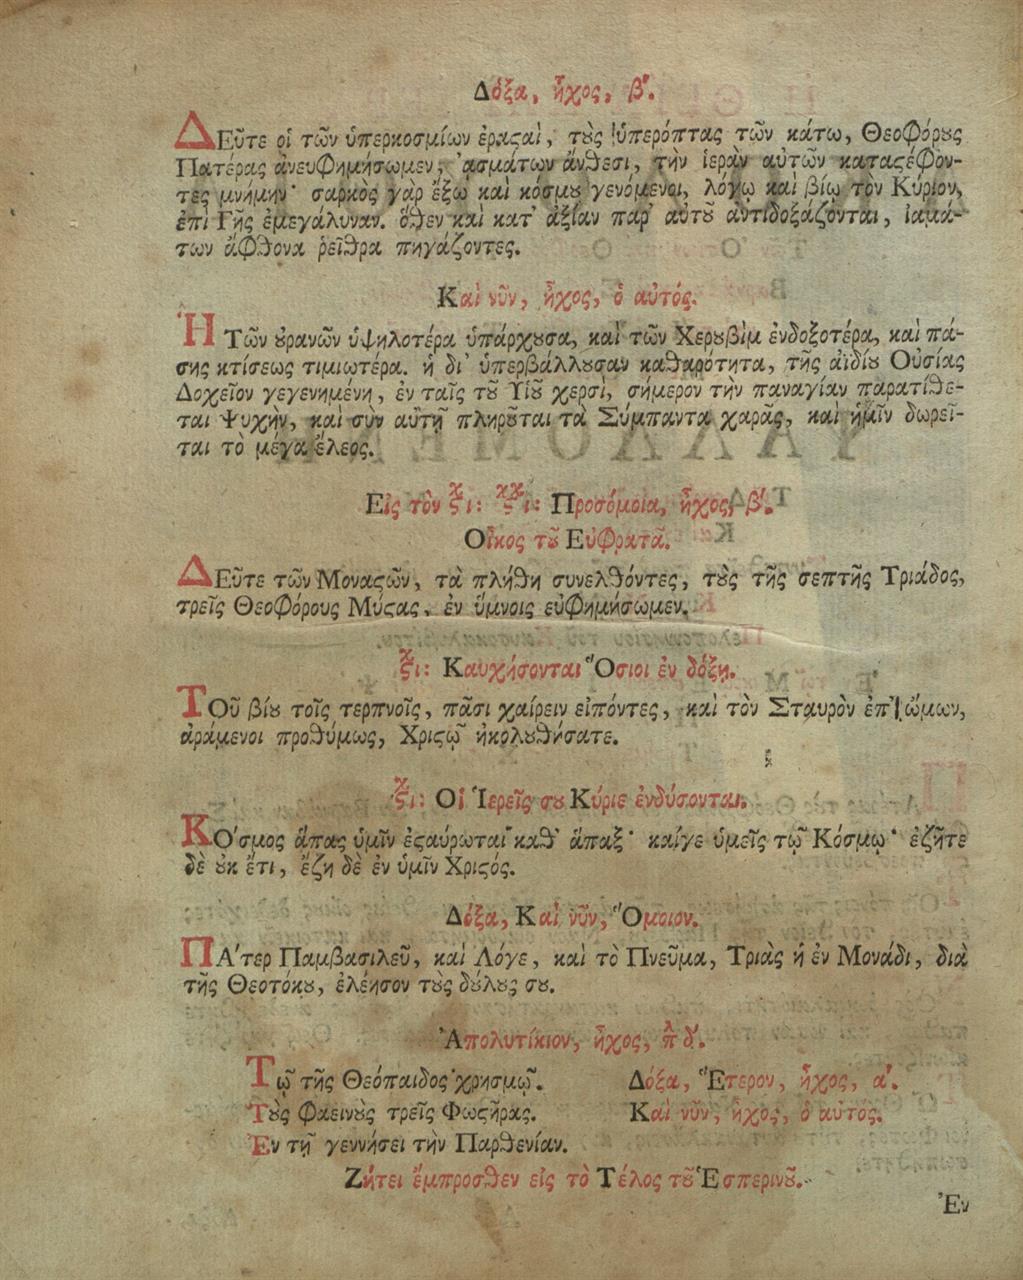 Δόξα, ἦχος, β'.
ΔΕῦτε οἱ τῶν ὑπερκοσμίων ἐραϛαὶ, τȣ̀ς ὑπερόπτας τῶν κάτω, Θεοφόρȣς
Πατέρας ἀνευφημήσωμεν, ᾀσμάτων ἄνθεσι, τὴν ἱερὰν αὐτῶν καταϛέφον-
τες μνήμην· σαρκὸς γὰρ ἔξω καὶ κόσμȣ γενόμενοι, λόγῳ καὶ βίῳ τὸν Κύριον,
ἐπὶ Γῆς ἐμεγάλυναν. ὅθεν καὶ κατ' ἀξίαν παρ' αὐτȣ͂ ἀντιδοξάζονται, ἰαμά-
των ἄφθονα ῥεῖθρα πηγάζοντες.
Καὶ νῦν, ἦχος, ὁ αὐτός.
Ἡ Τῶν ȣ̓ρανῶν ὑψηλοτέρα ὑπάρχȣσα, καὶ τῶν Χερȣβὶμ ἐνδοξοτέρα, καὶ πά-
σης κτίσεως τιμιωτέρα. ἡ δι' ὑπερβάλλȣσαν καθαρότητα, τῆς ἀϊδίȣ Οὐσίας
Δοχεῖον γεγενημένη, ἐν ταῖς τȣ͂ Υἱȣ͂ χερσὶ, σήμερον τὴν παναγίαν παρατίθε-
ται Ψυχὴν, καὶ σὺν αὐτῇ πληρȣ͂ται τὰ Σύμπαντα χαρᾶς, καὶ ἡμῖν δωρεῖ-
ται τὸ μέγα ἔλεος.
Εἰς τὸν ϛχι: ϛχχι: Προσόμοια, ἦχος, β'.
Οἶκος τȣ͂ Εὐφρατᾶ.
ΔΕῦτε τῶν Μοναϛῶν, τὰ πλήθη συνελθόντες, τȣ̀ς τῆς σεπτῆς Τριάδος,
τρεῖς Θεοφόρους Μύϛας, ἐν ὕμνοις εὐφημήσωμεν.
ϛχι: Καυχήσονται Ὅσιοι ἐν δόξῃ.
ΤΟῦ βίȣ τοῖς τερπνοῖς, πᾶσι χαίρειν εἰπόντες, καὶ τὸν Σταυρὸν ἐπ' ὤμων,
ἀράμενοι προθύμως, Χριϛῷ ἠκολȣθήσατε.
ϛχι: Οἱ Ἱερεῖς σȣ Κύριε ἐνδύσονται.
ΚΌσμος ἅπας ὑμῖν ἐϛαύρωται καθ' ἅπαξ· καίγε ὑμεῖς τῷ Κόσμῳ· ἐζῆτε
δὲ ȣ̓κ ἔτι, ἔζη δὲ ἐν ὑμῖν Χριϛός.
Δόξα, Καὶ νῦν, Ὅμοιον.
ΠΆτερ Παμβασιλεῦ, καὶ Λόγε, καὶ τὸ Πνεῦμα, Τριὰς ἡ ἐν Μονάδι, διὰ
τῆς Θεοτόκȣ, ἐλέησον τȣ̀ς δύλȣς σȣ.
Ἀπολυτίκιον, ἦχος, πλ δ'.
Τῷ τῆς Θεόπαιδος χρησμῷ. Δόξα, Ἕτερον, ἦχος, α'.
Τȣ̀ς φαεινȣ̀ς τρεῖς Φωϛῆρας. Καὶ νῦν, ἦχος, ὁ αὐτός.
Ἐν τῇ γεννήσει τὴν Παρθενίαν.
Ζήτει ἔμπροσθεν εἰς τὸ Τέλος τȣ͂ Ἑσπερινȣ͂.
Ἐν